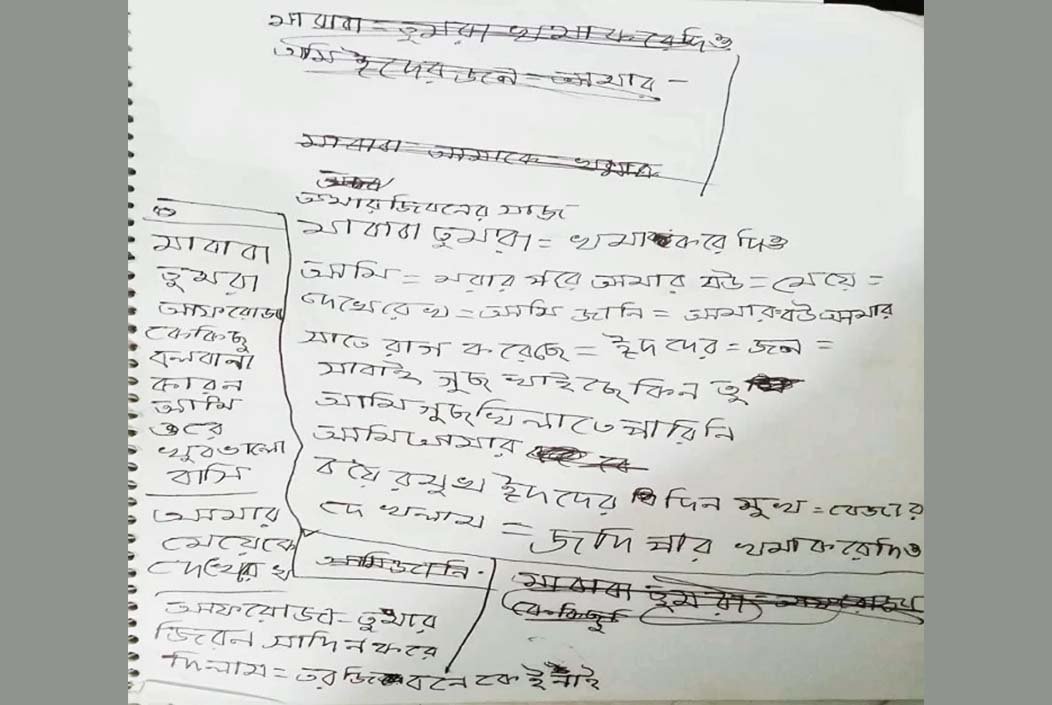 মা বাবা = তুমরা খমা করে দিও
আমি ঈদের জনে = আমার -
মা বাবা আমাকে
আমার জিবনের সাজা
মা বাবা তুমরা = খমা করে দিও
আমি = মরার পরে আমার বউ = মেয়ে =
দেখে রেখ = আমি জানি = আমার বউ আমার
সাতে রাগ করেছে = ঈদ দের = জন =
সাবাই গুছ খাইছে কিন তু
আমি গুছ খিলাতে পারিনি
আমি আমার
বয়ের মুখ ঈদ দের দিন মুখ = বেজার
দে খলাম = জদি পার খমা করে দিও
ও
মা বাবা
তুমরা
আফরোজা
কে কিছু
বলবানা
কারন
আমি
ওরে
খুব ভালো
বাসি
আমার
মেয়েকে
দেখে রেখ
আমি জানি -
মা বাবা তুমরা = আফরোজা
কে কিছু
আফরোজা = তুমারে
জিবন সাদিন করে
দিলাম = তর জিবনে কেই নাই